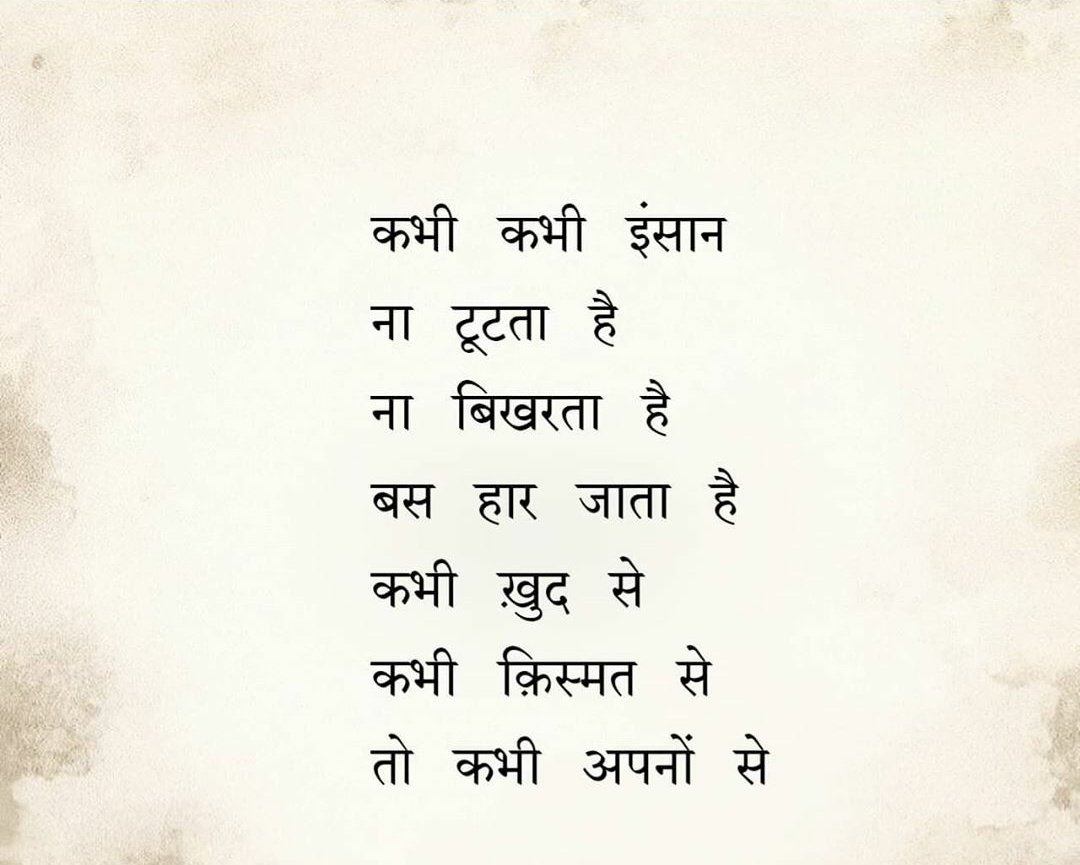 कभी कभी इंसान
ना टूटता है
ना बिखरता है
बस हार जाता है
कभी ख़ुद से
कभी क़िस्मत से
तो कभी अपनों से